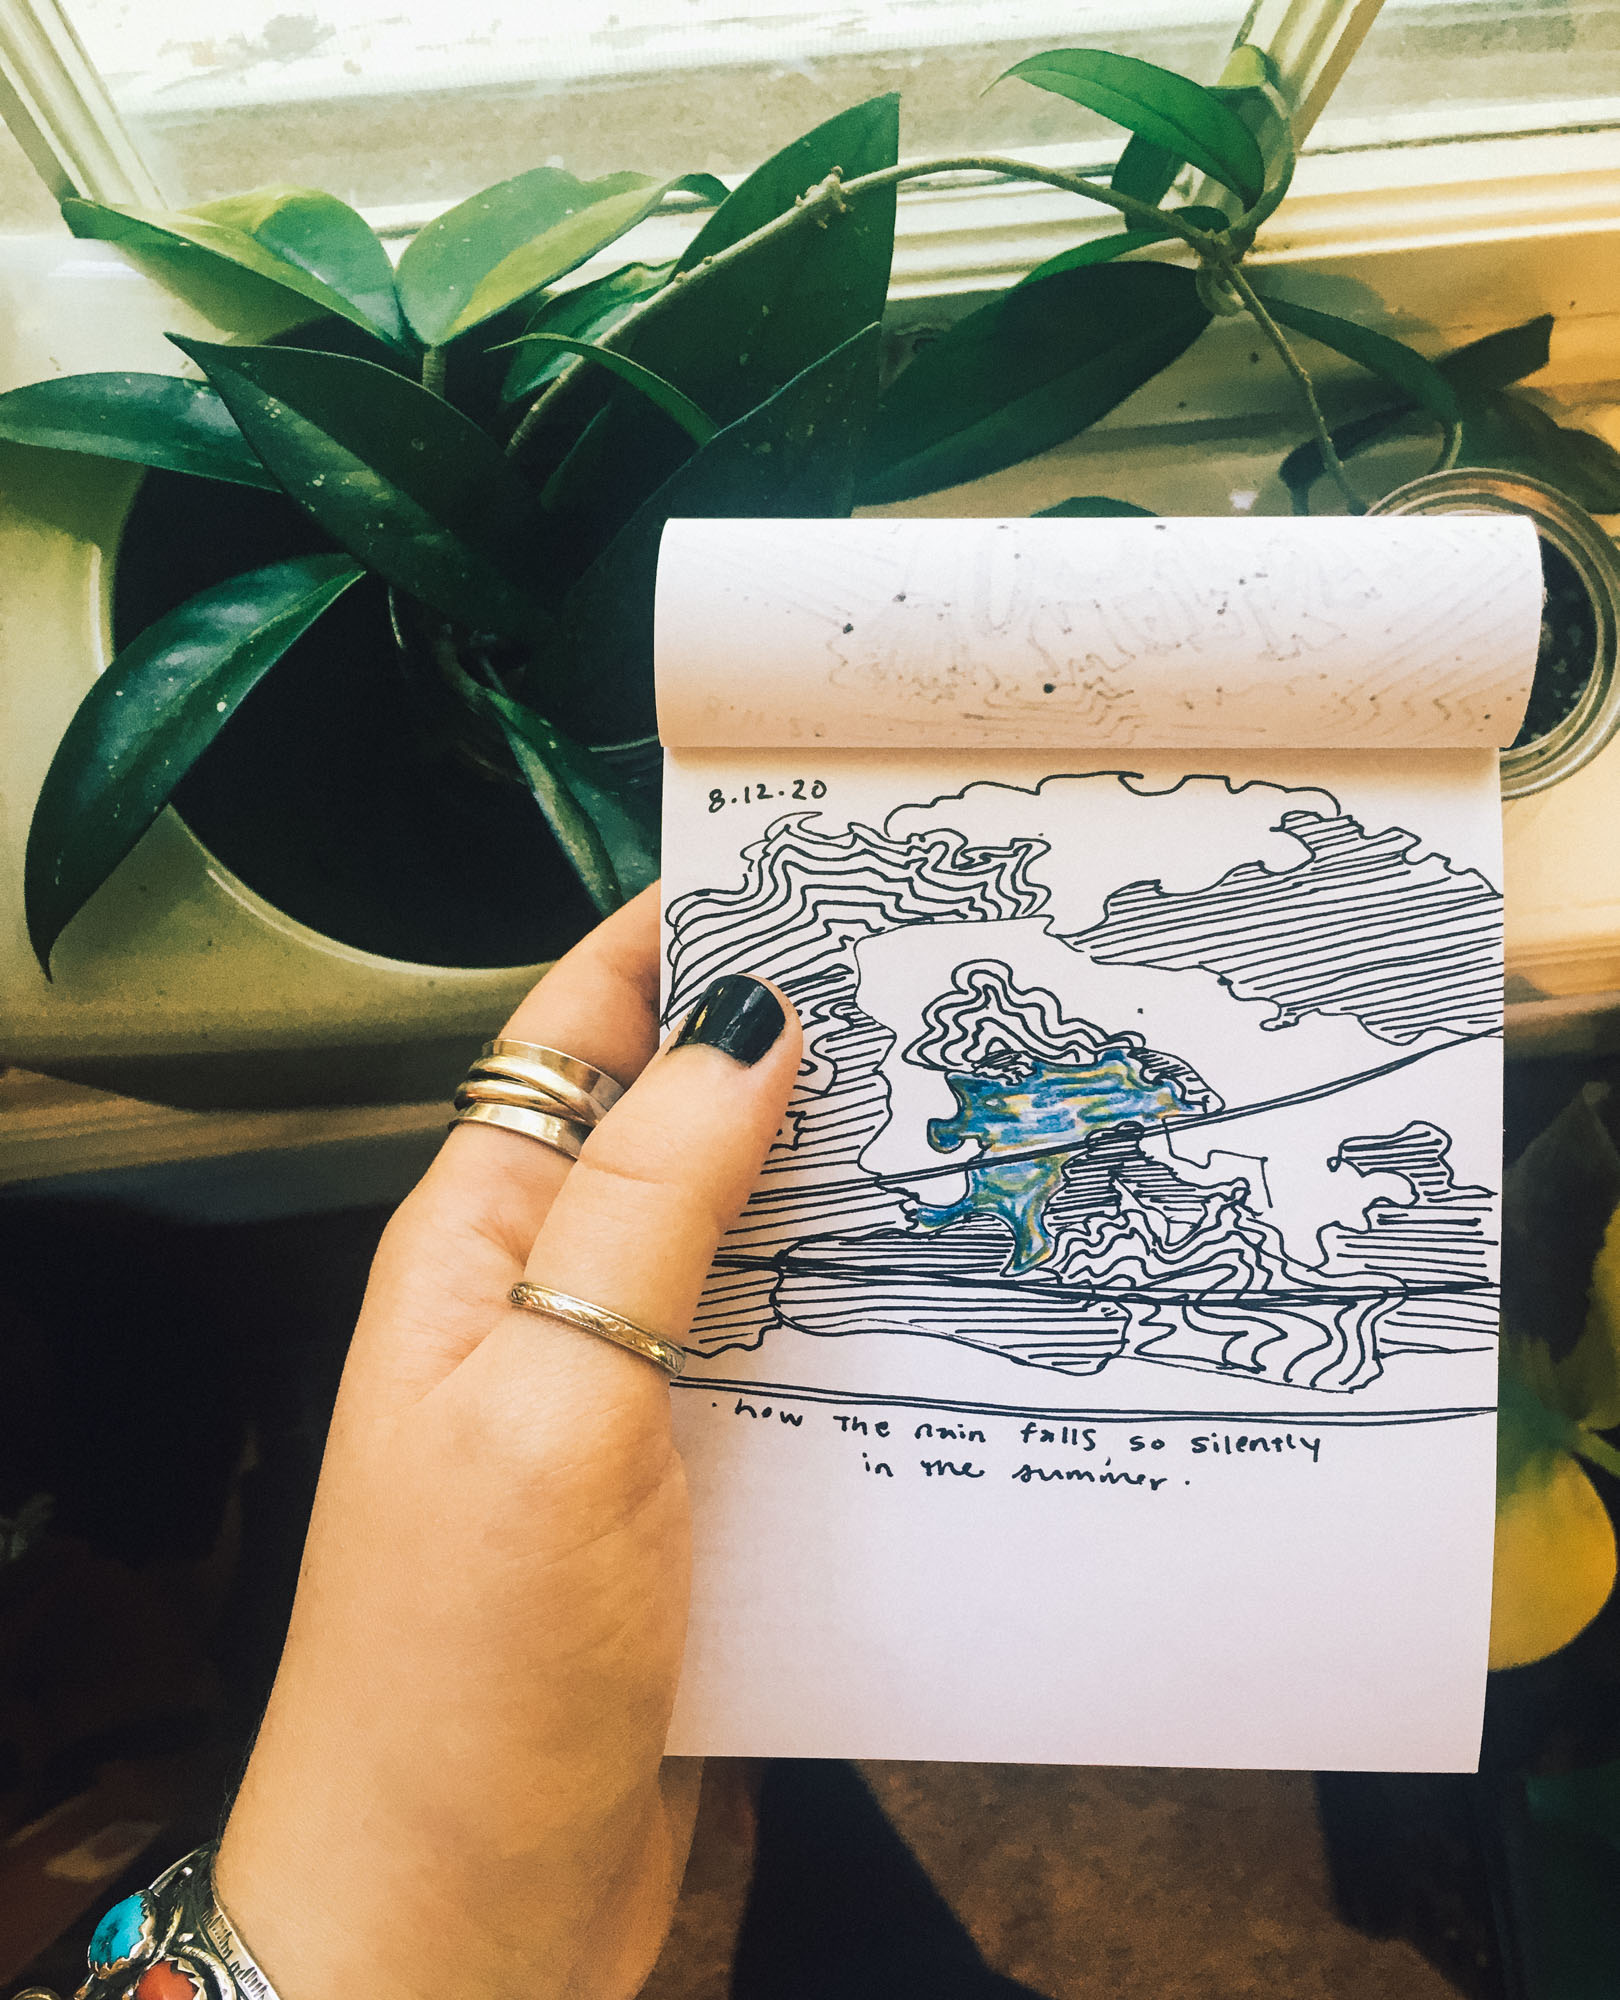 8.12.20
. how the rain falls so silently
in the summer.